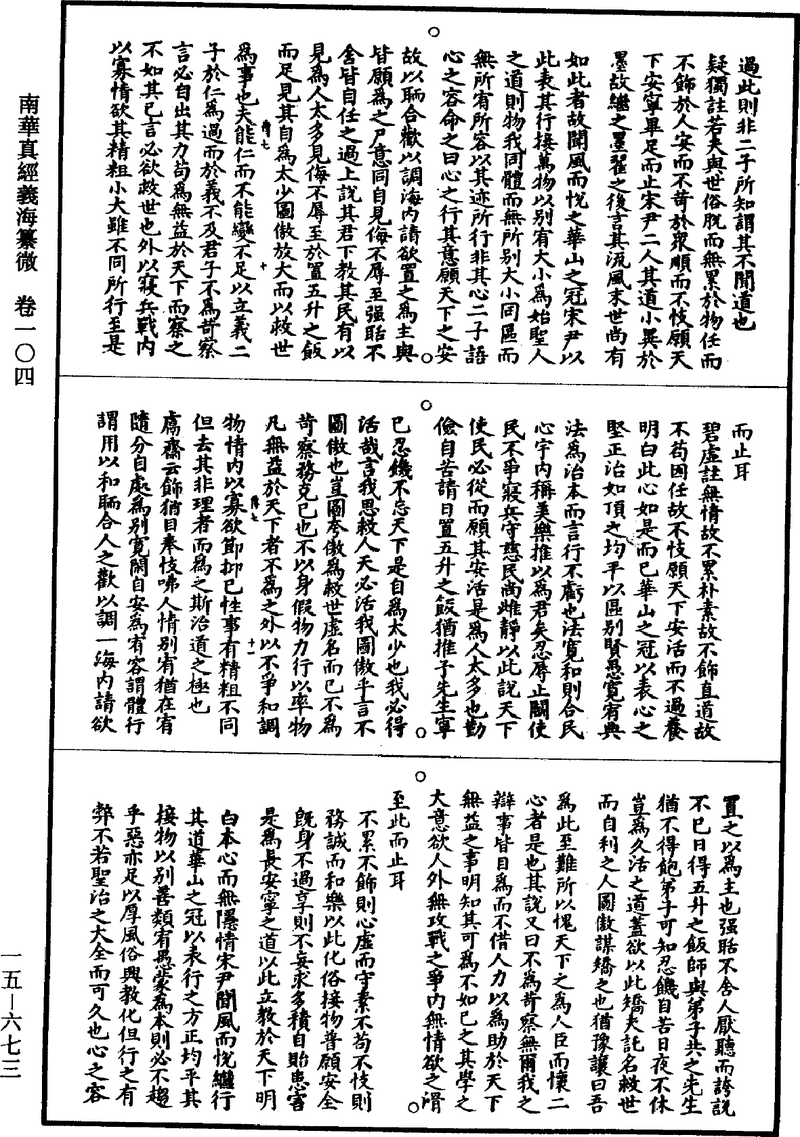 南華真經義海纂微　卷一〇四
過此則非二子所知謂其不聞道也
疑獨註若夫與世俗脫而無累於物任而
不飾於人安而不苟於眾順而不忮願天
下安寧畢足而止宋尹二人其道小異於
墨故繼之墨翟之後言其流風末世尚有
如此者故聞風而悅之華山之冠宋尹以
此表其行接萬物以別宥大小為始聖人
之道則物我同體而無所別大小罔區而
無所宥所容以其迹所行非其心二子語
心之容命之曰心之行其意願天下之安
故以聏合歡以調海内請欲置之為主與
皆願為之尸意同自見侮不辱至强聒不
舍皆自任之過上說其君下教其民有以
見為人太多見侮不辱至於置五升之飯
而足見其自為太少圖傲放大而以救世
為事也夫能仁而不能變不足以立義二
子於仁為過而於義不及君子不為苛察
言必自出其力苟為無益於天下而察之
不如其已言必欲救世也外以寢兵戰内
以寡情欲其精粗小大雖不同所行至是
而止耳
碧虛註無情故不累朴素故不飾直道故
不苟因任故不忮願天下安活而不過養
明白此心如是而已華山之冠以表心之
堅正治如頂之均平以區别賢愚寬宥典
法為治本而言行不虧也法寬和則合民
心宇内稱美樂推以為君矣忍辱止鬭使
民不爭寢兵守慈民尚雌靜以此說天下
使民必從而願其安活是為人太多也勤
儉自苦請日置五升之飯猶推子先生寧
已忍饑不忘天下是自為太少也我必得
活哉言我思救人天必活我圖傲乎言不
圖傲也豈圖夸傲為救世虛名而已不為
苛察務克已也不以身假物力行以率物
凡無益於天下者不為之外以不爭和調
物情内以寡欲節抑已性事有精粗不同
但去其非理者而為之斯治道之極也
鬳齋云飾猶目奉忮咈人情别宥猶在宥
隨分自處為别寬閑自安為宥容謂體行
謂用以和聏合人之歡以調一海内請欲
置之以為主也强聒不舍人厭聽而誇說
不已日得五升之飯師與弟子共之先生
猶不得飽弟子可知忍饑自苦日夜不休
豈為久活之道蓋欲以此矯夫託名救世
而自利之人圖傲謀矯之也猶豫讓曰吾
為此至難所以愧天下之為人臣而懷二
心者是也其說又曰不為苛察無爾我之
辯事皆目為而不借人力以為助於天下
無益之事明知其可為不如已之其學之
大意欲人外無攻戰之爭内無情欲之滑
至此而止耳
不累不飾則心虛而守素不苟不忮則
務誠而和樂以此化俗接物普願安全
既身不過享則不妄求多積自貽患害
是為長安寧之道以此立教於天下明
白本心而無隱情宋尹聞風而悅繼行
其道華山之冠以表行之方正均平其
接物以别善類宥愚蒙為本則必不趨
乎惡亦足以厚風俗興教化但行之有
弊不若聖治之大全而可久也心之容
一五—六七三